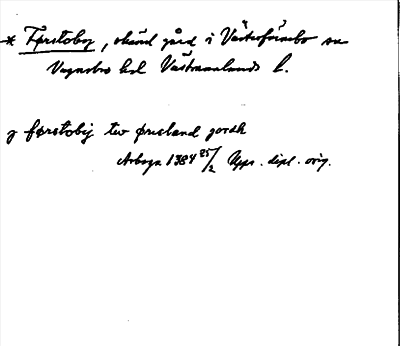 * Førstoboy, okänd gård i Västerfärnebo sn
Vagnsbro hd Västmanlands l.
j førstobij tw øresland jordh
Arboga 1384 25/2 Upps. dipl. orig.